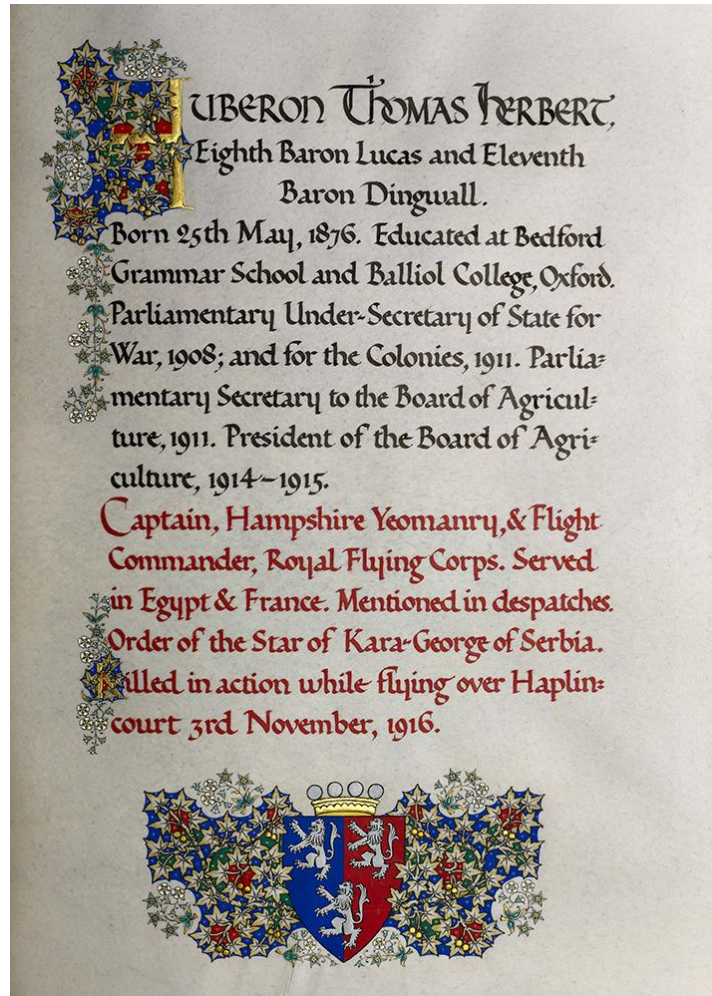 AUBERON THOMAS HERBERT,
Eighth Baron Lucas and Eleventh
Baron Dingwall.
Born 25th May, 1876. Educated at Bedford
Grammar School and Balliol College, Oxford.
Parliamentary Under-Secretary of State for
War, 1908; and for the Colonies, 1911. Parlia=
mentary Secretary to the Board of Agricul=
ture, 1911. President of the Board of Agri=
culture, 1914-1915.
Captain, Hampshire Yeomanry, & Flight
Commander, Royal Flying Corps. Served
in Egypt & France. Mentioned in despatches.
Order of the Star of Kara-George of Serbia.
Killed in action while flying over Haplin=
court 3rd November, 1916.